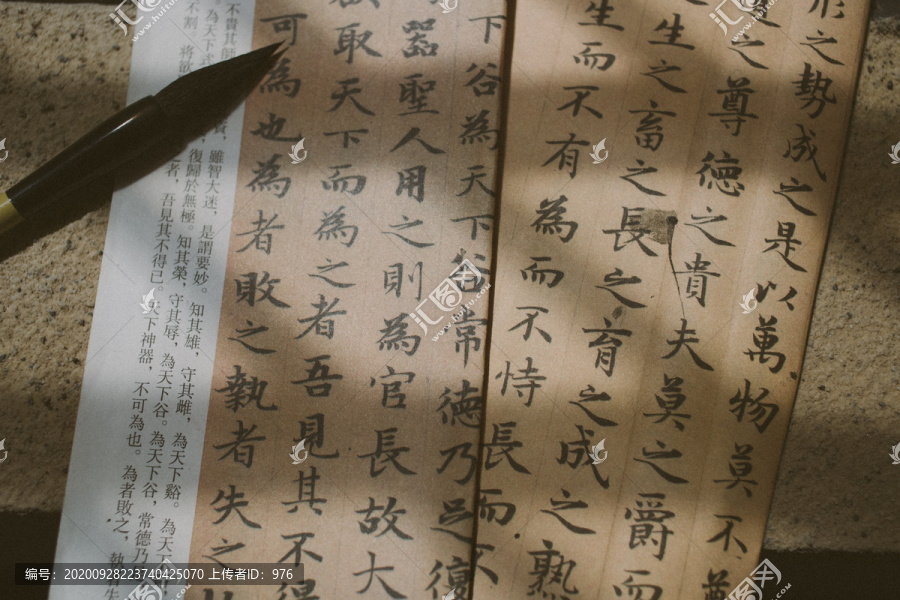 形之勢成之是以萬物莫不尊
之尊德之貴夫莫之爵而
生之畜之長之育之成之熟
生而不有為而不恃長而不
下谷為天下谷常德乃足復
器聖人用之則為官長故大
欲取天下而為之者吾見其不得
可為也為者敗之執者失之
不貴其師 資，雖智大迷，是謂要妙。 知其雄，守其雌，為天下谿。為天下
為天下 復歸於無極。知其榮，守其辱，為天下谷。為天下谷，常德乃
不割。將欲 之者，吾見其不得已。天下神器，不可為也。為者敗之，執者失
编号：20200928223740425070 上传者ID：976